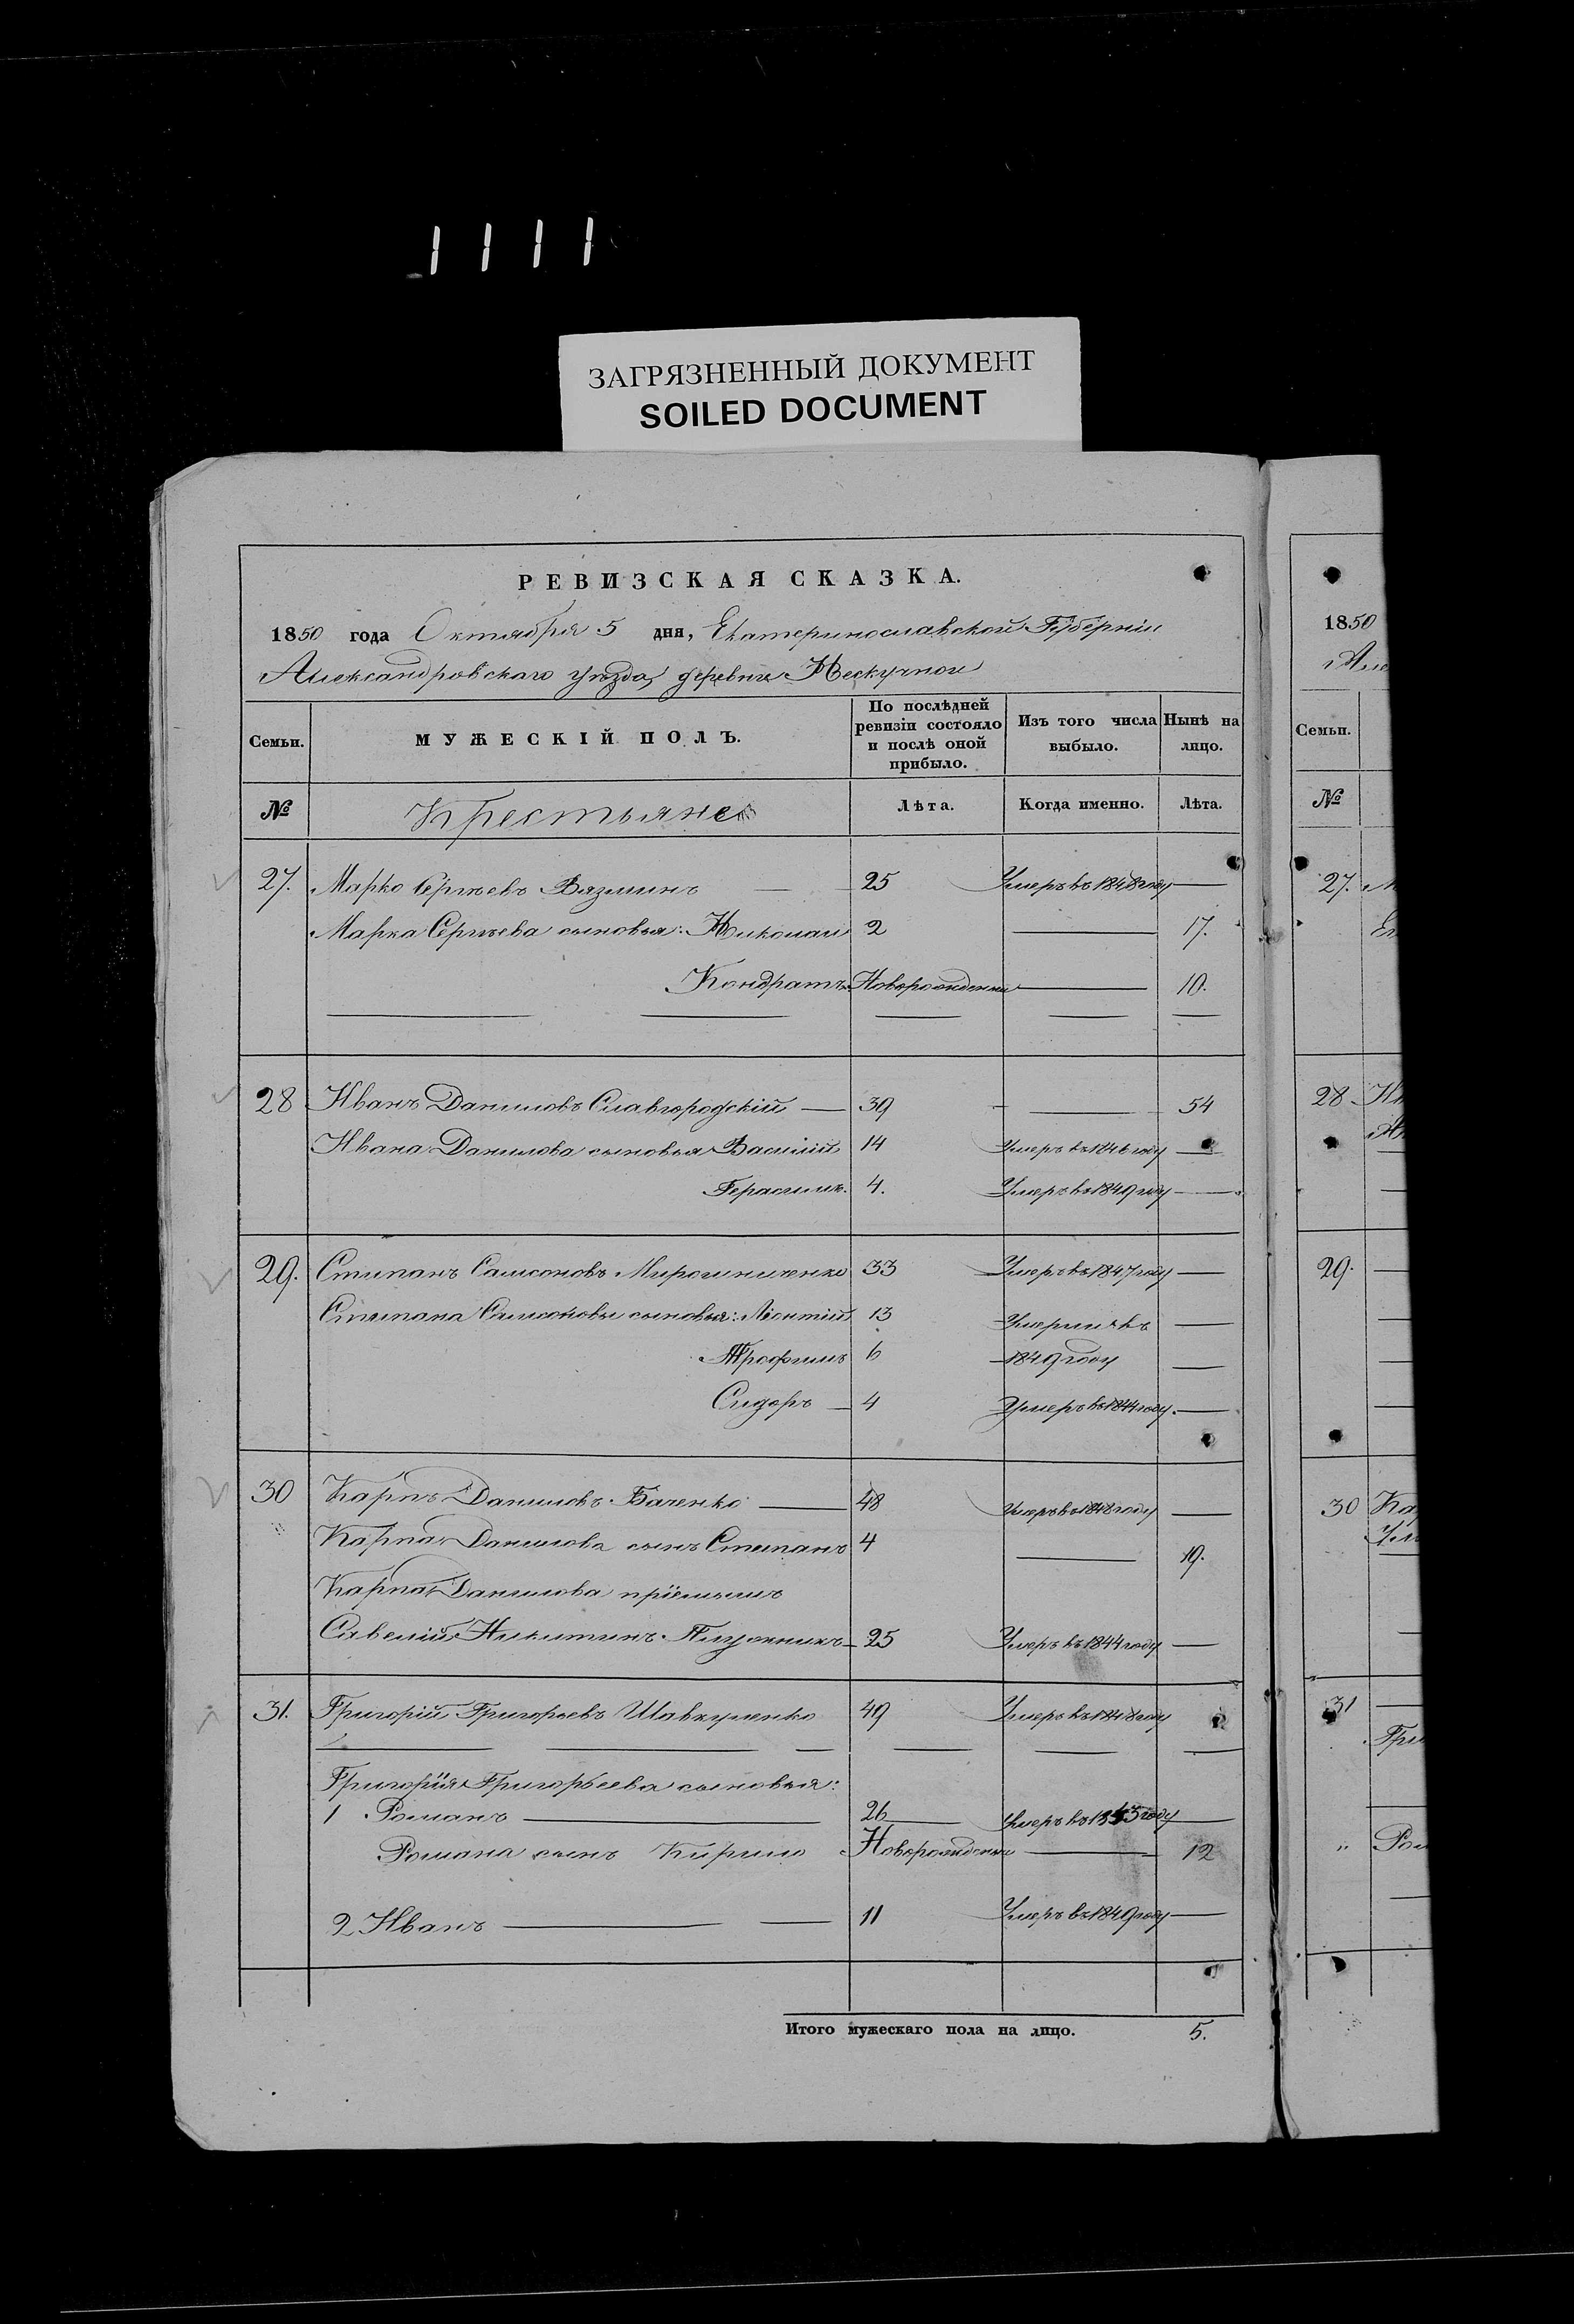 1111
ЗАГРЯЗНЕННЫЙ ДОКУМЕНТ
SOILED DOCUMENT
РЕВИЗСКАЯ СКАЗКА.
1850 года Октября 5 дня, Екатеринославской Губернiи
Александровскаго уѣзда, деревни Нескучной
Семьи. МУЖЕСКIЙ ПОЛЪ. По послѣдней ревизiи состояло и послѣ оной прибыло. Изъ того числа выбыло. Нынѣ на лицо.
№ Крестьяне Лѣта. Когда именно. Лѣта.
27. Марко Сергѣевъ Вязминъ — 25 Умеръ въ 1848 году —
Марка Сергѣева сыновья: Николай 2 — 17.
Кондратъ Новорожденны — 10.
28 Иванъ Даниловъ Славгородскiй — 39 — 54
Ивана Данилова сыновья Василiй 14 Умеръ въ 1846 году —
Герасимъ. 4. Умеръ въ 1849 году —
29. Стипанъ Самсоновъ Мирошниченко 33 Умеръ въ 1847 году —
Степана Самсонова сыновья: Леонтiй 13 Умерли въ —
Трофимъ 6 1849 году —
Сидоръ — 4 Умеръ въ 1844 году. —
30 Карпъ Даниловъ Баченко — 48 Умеръ въ 1848 году —
Карпа Данилова сынъ Степанъ 4 — 19.
Карпа Данилова прiемышъ
Савелiй Никитинъ — 25 Умеръ въ 1844 году —
31. Григорiй Григорьевъ Шавкуненко 49 Умеръ въ 1848 году
Григорiя Григорьева сыновья:
1 Романъ — 26 Умеръ въ 1843 году —
Романа сынъ Кирило Новорожденны — 12
2 Иванъ — 11 Умеръ въ 1849 году —
Итого мужескаго пола на лицо. 5.
1850
Але
Семьи.
№
27. М
28 Ив
29.
30 Ка
31
Гри
" Ром